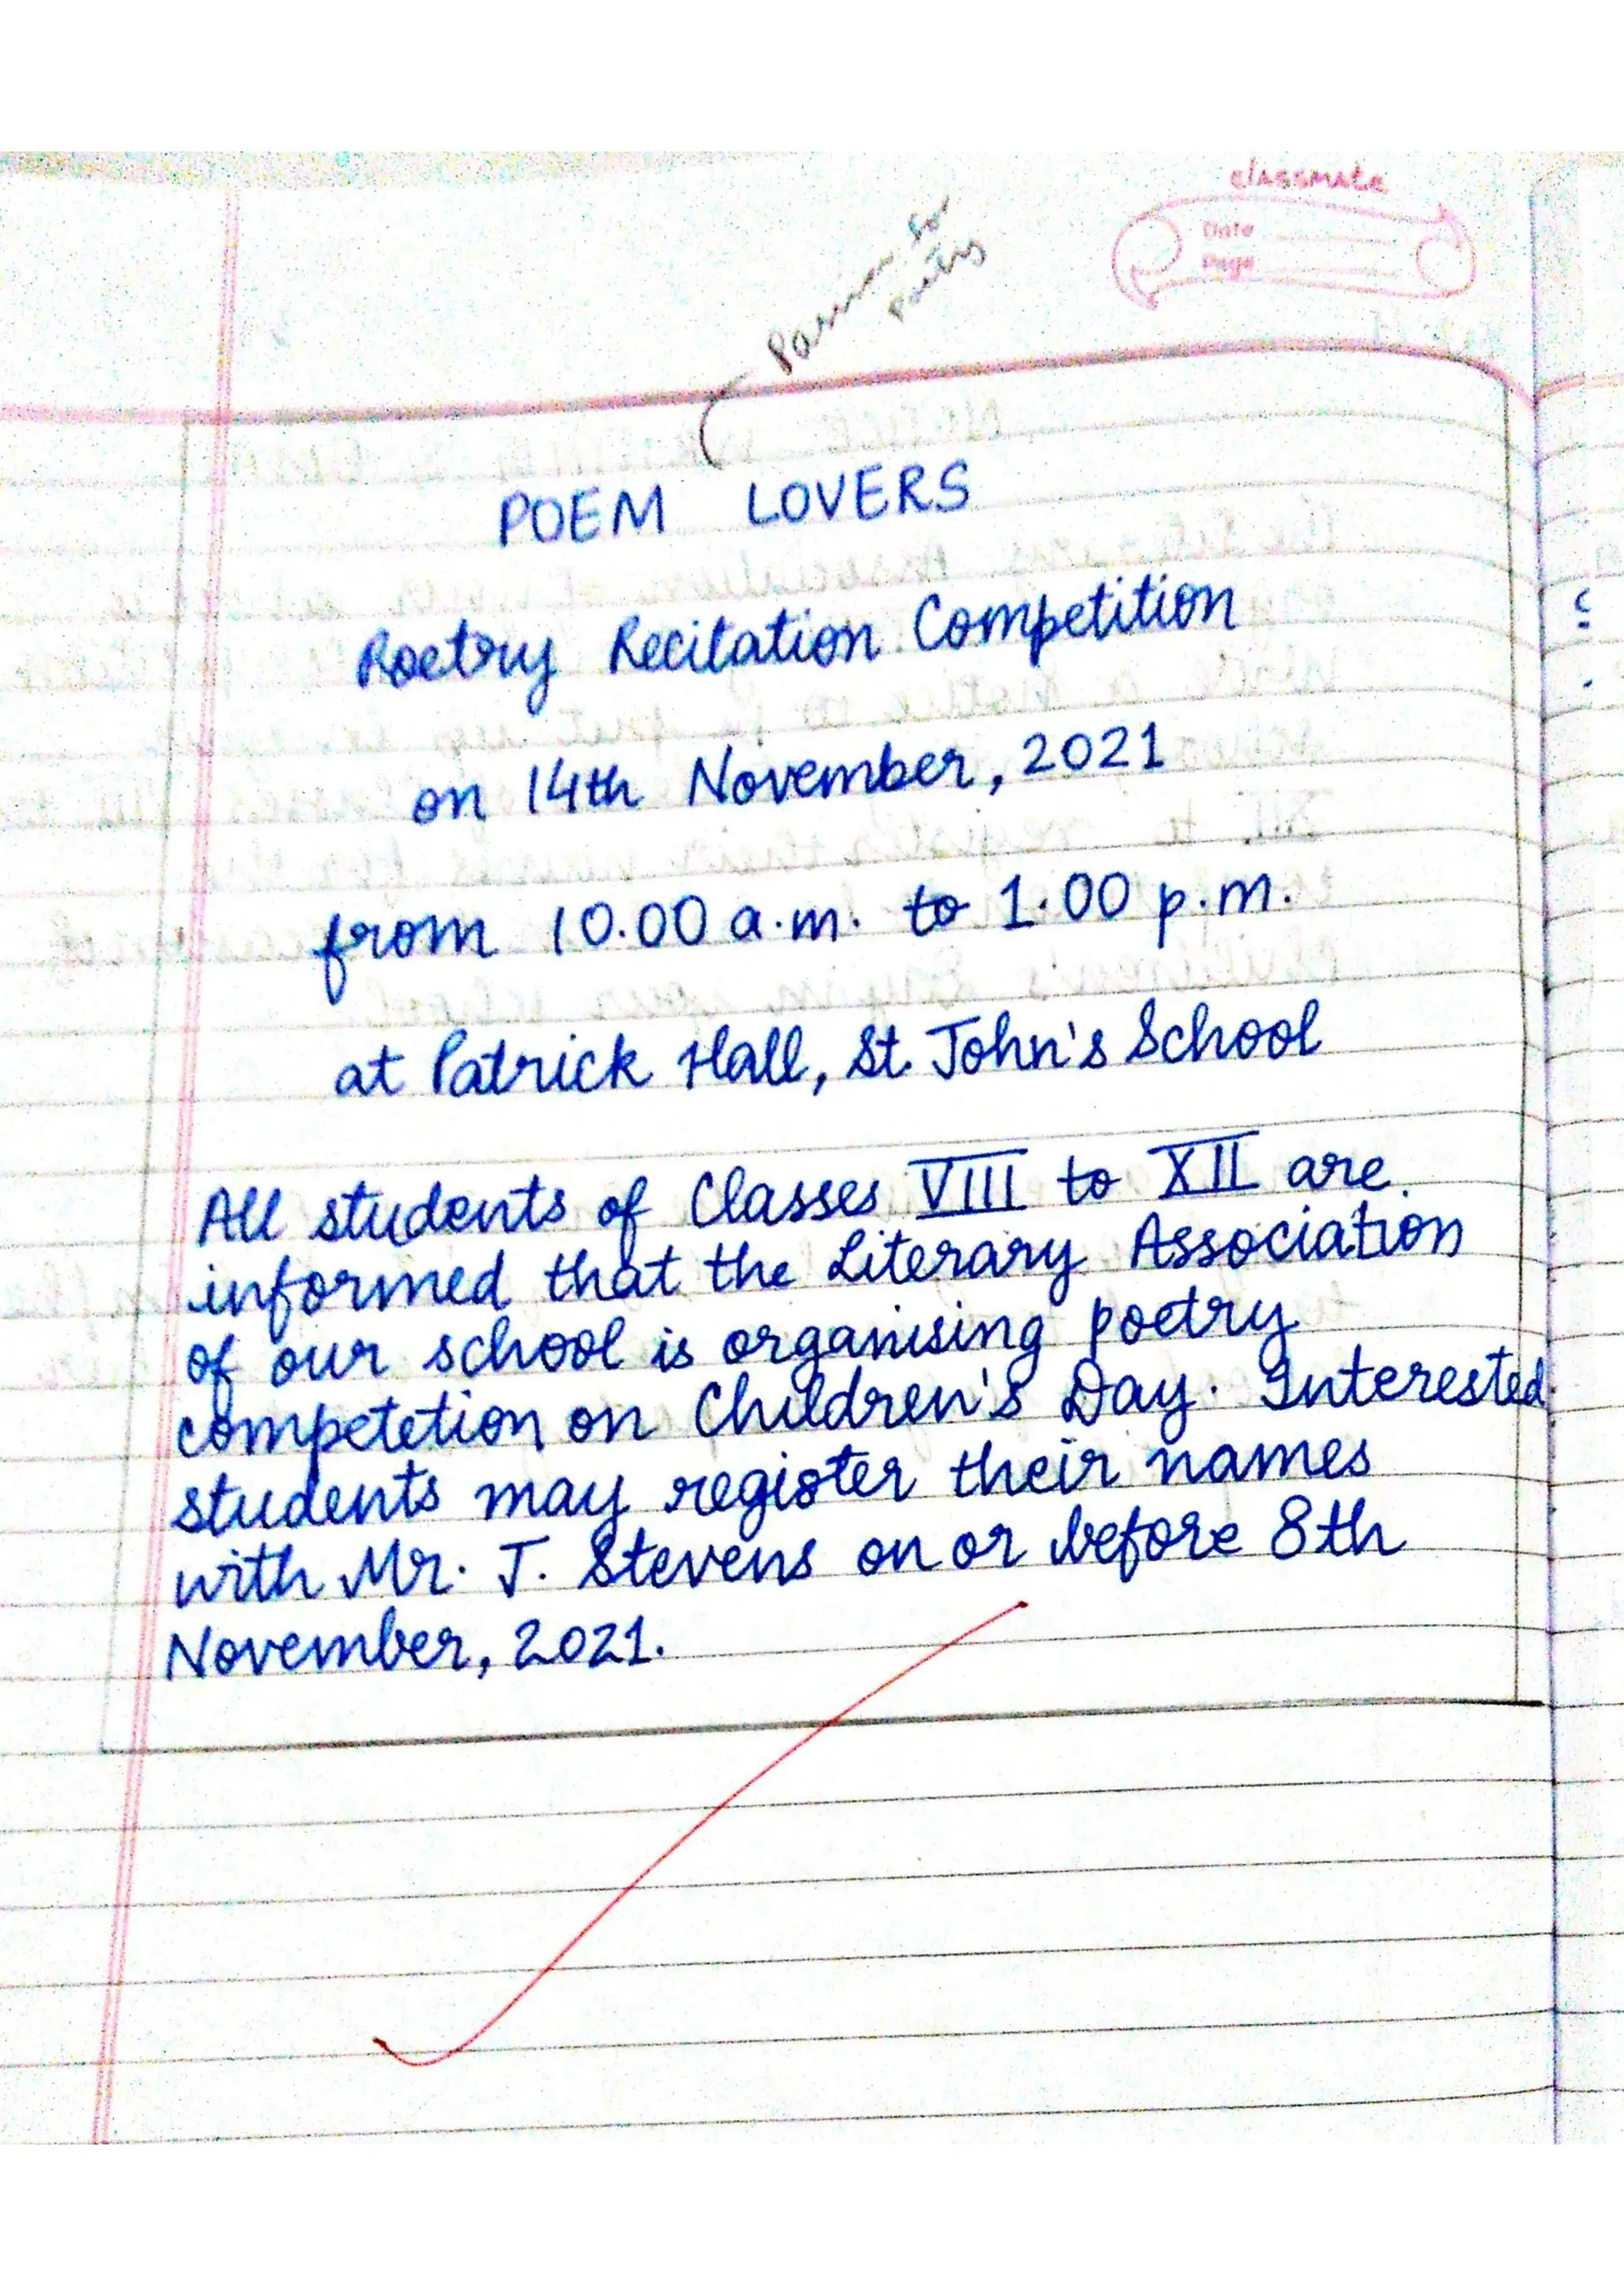 classmate
Date
Page
Passion for
poetry
POEM LOVERS
Poetry Recitation Competition
on 14th November, 2021
from 10.00 a.m. to 1.00 p.m.
at Patrick Hall, St. John's School
All students of Classes VIII to XII are
informed that the Literary Association
of our school is organising poetry
competetion on Children's Day. Interested
students may register their names
with Mr. J. Stevens on or before 8th
November, 2021.